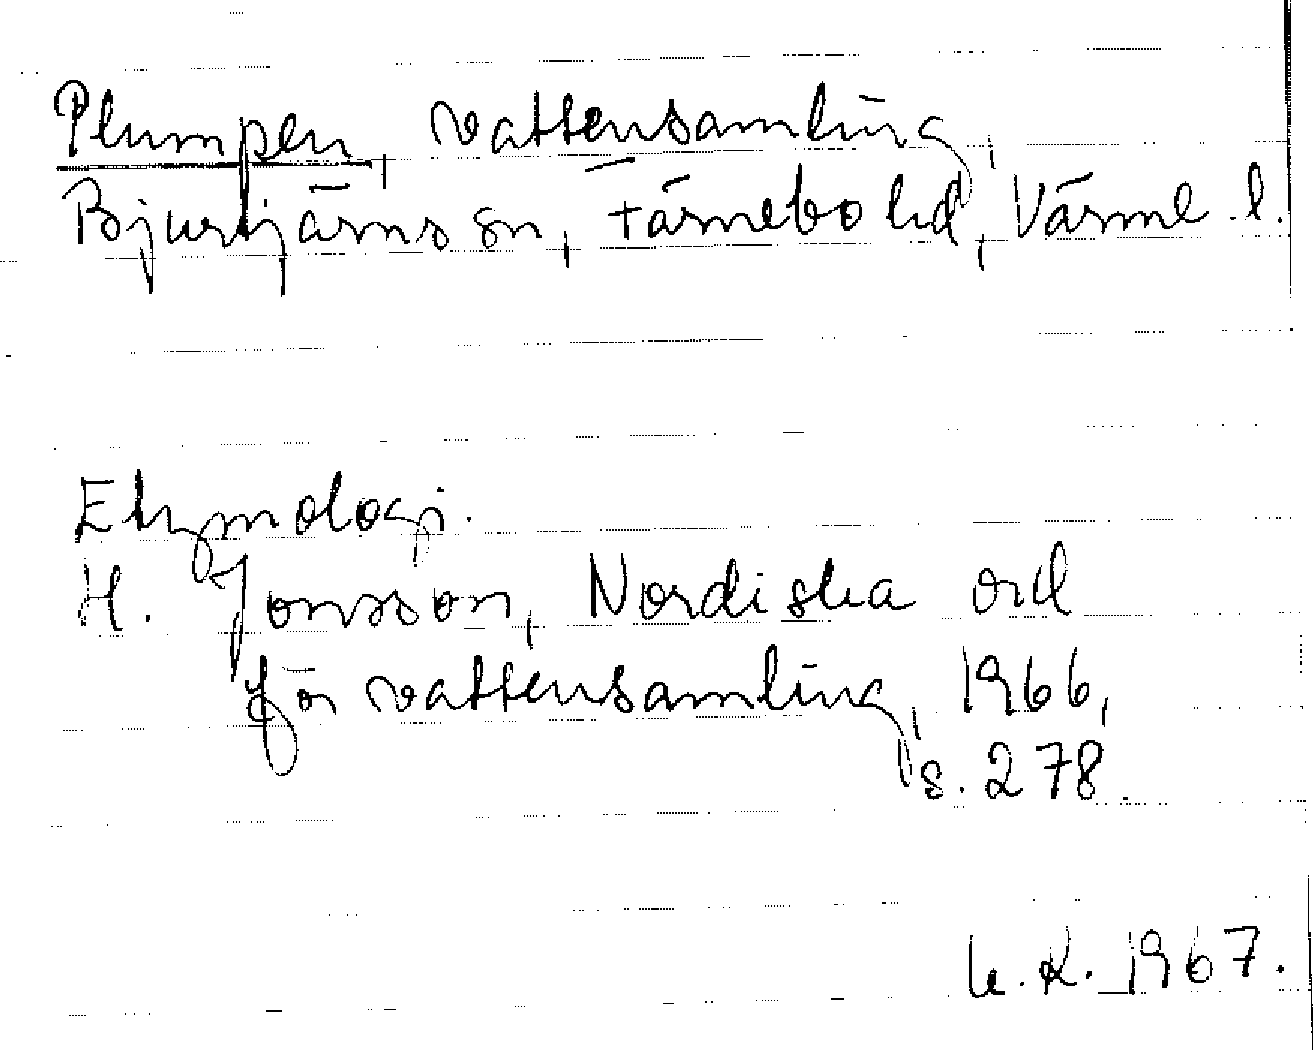 Plumpen, vattensamling,
Bjurtjärns sn, Färnebo hd, Värml. l.
Etymologi.
H. Jonsson, Nordiska ord
för vattensamling, 1966,
s. 278.
1967.